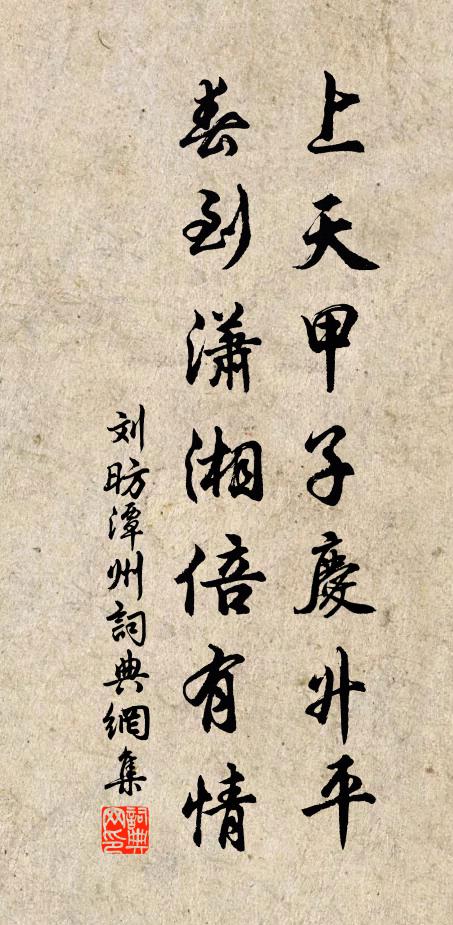 上天甲子慶升平
春到瀟湘倍有情
刘昉潭州詞典網集
詞典
网印